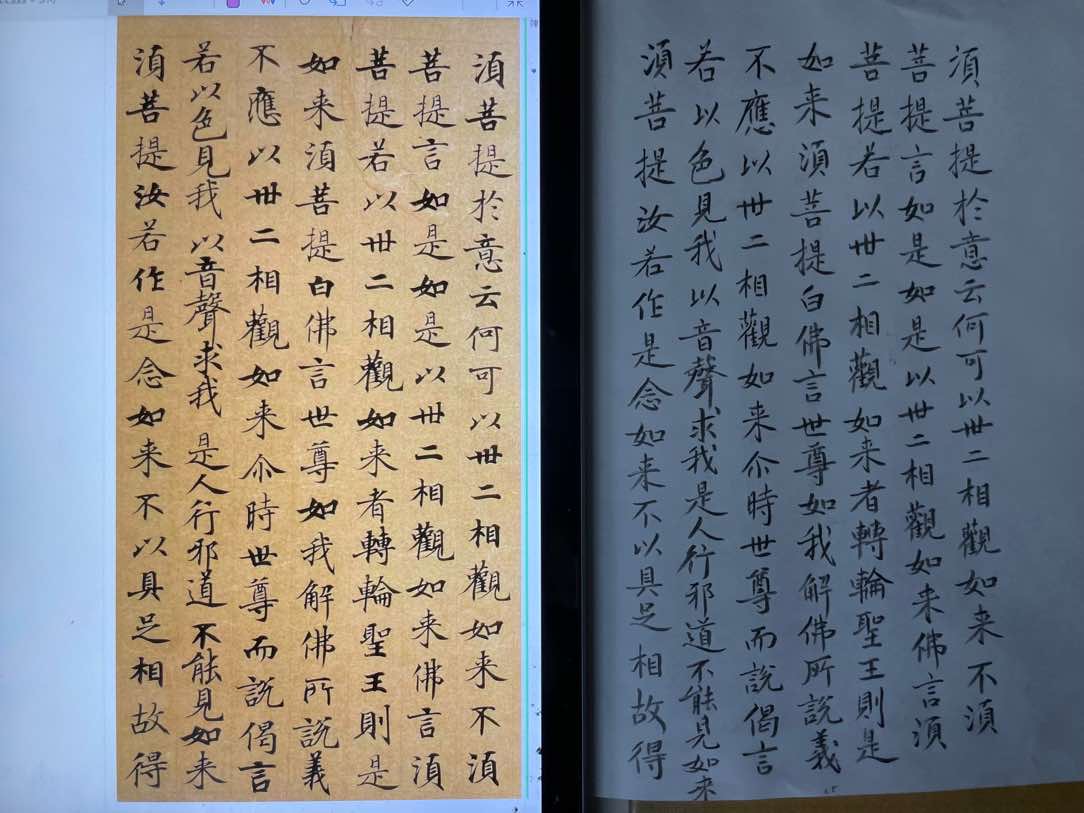 湏菩提於意云何可以卅二相觀如来不湏
菩提言如是如是以卅二相觀如来佛言湏
菩提若以卅二相觀如来者轉輪聖王則是
如来湏菩提白佛言世尊如我解佛所說義
不應以卅二相觀如来尒時世尊而說偈言
若以色見我以音聲求我 是人行邪道 不能見如来
湏菩提汝若作是念如来不以具足相故得
湏菩提於意云何可以卅二相觀如来不湏
菩提言如是如是以卅二相觀如来佛言湏
菩提若以卅二相觀如来者轉輪聖王則是
如来湏菩提白佛言世尊如我解佛所說義
不應以卅二相觀如来尒時世尊而說偈言
若以色見我以音聲求我是人行邪道不能見如来
湏菩提汝若作是念如来不以具足相故得